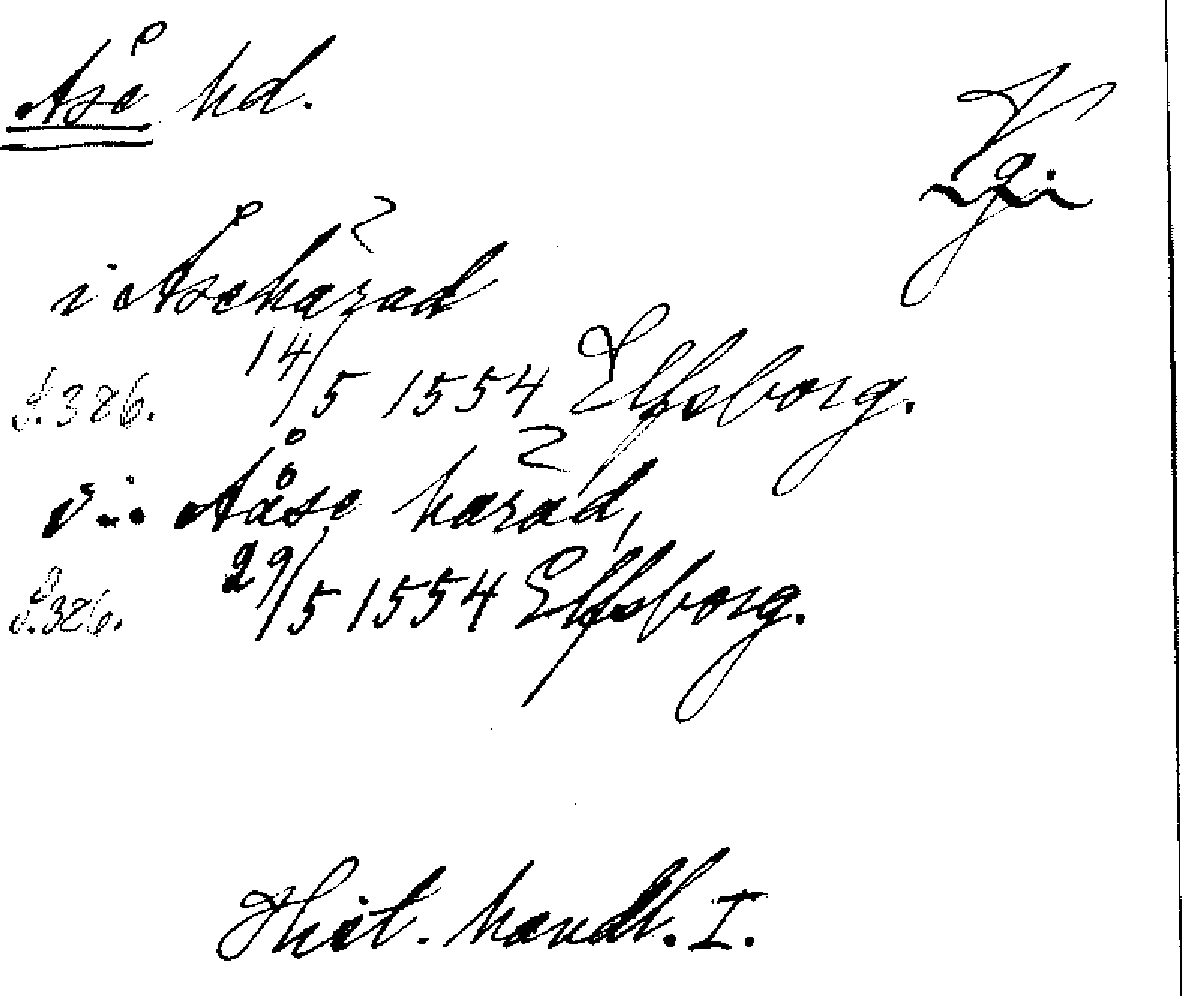 Åse hd.
Vg
i Åsehärad
S.326. 14/5 1554 Elfsborg.
i Aåse härad,
S.326. 29/5 1554 Elfsborg.
Hist. handl. I.